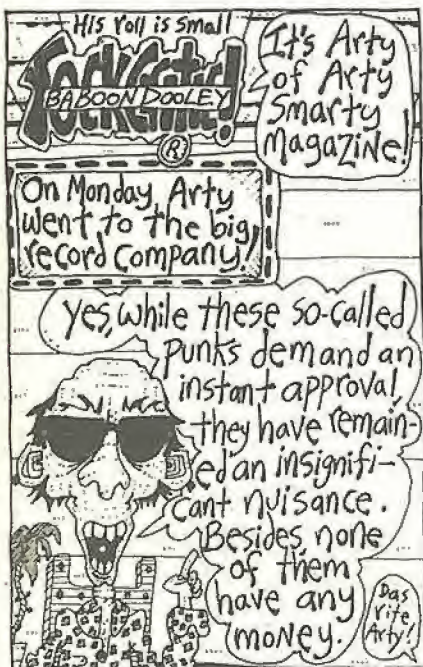 His roll is small
ROCKCRITIC!
BABOON DOOLEY
®
It's Arty
of Arty
Smarty
Magazine!
On Monday Arty
went to the big
record company!
Yes, while these so-called
punks demand an
instant approval,
they have remain-
ed an insignifi-
cant nuisance.
Besides none
of them
have any
money.
Das
rite
Arty!